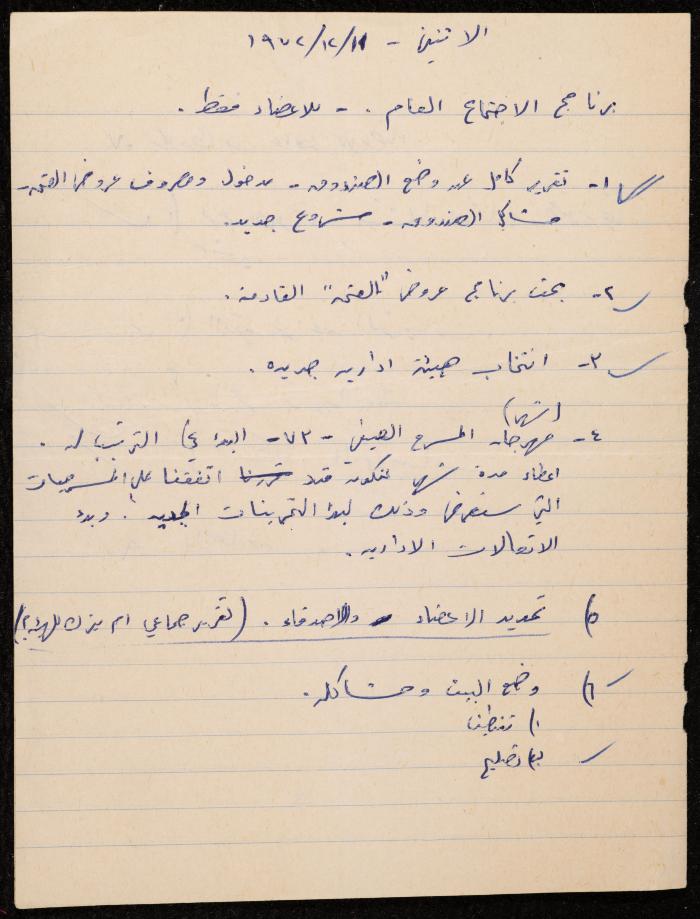 الاثنين - ١٩٧٢/١٢/١١
برنامج الاجتماع العام . - للاعضاء فقط .
١- تقرير كامل عن وضع الصندوق - مدخول ومصروف عروض العتمة -
مشاكل الصندوق - مشروع جديد .
٢- بحث برنامج عروض "العتمة" القادمة .
٣- انتخاب هيئة ادارية جديده .
(شهر)
٤- مهرجان المسرح الصيفي - ٧٣ - البدء في الترتيب له .
اعطاء مدة شهر لنكون قد قررنا اتفقنا على المسرحيات
التي ستعرض وذلك لبدء التمرينات الجديه . وبدء
الاتصالات الاداريه .
٥) تحديد الاعضاء والاصدقاء . (تقرير جماعي ام يترك للهيئة ؟)
٦) وضع البيت ومشاكله .
١) تنظيف
٢) تصليح